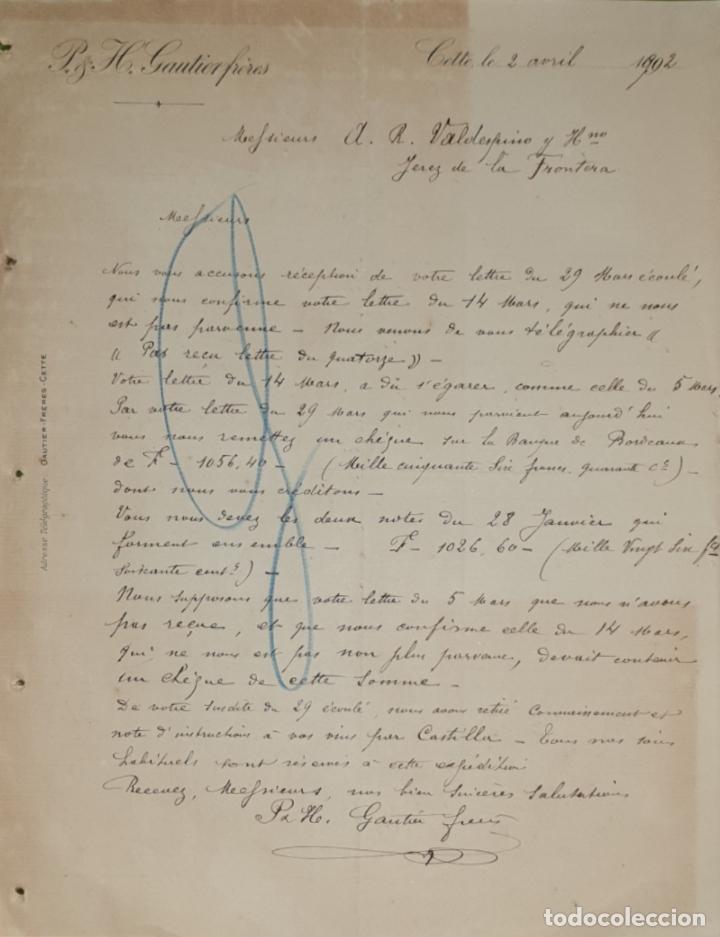 P. & H. Gautier frères
Cette, le 2 avril 1892
Messieurs A. R. Valdespino y Hno
Jerez de la Frontera
Messieurs
Nous vous accusons réception de votre lettre du 29 Mars écoulé,
qui nous confirme votre lettre du 14 Mars, qui ne nous
est pas parvenue — Nous venons de vous télégraphier «
« Pas reçu lettre du quatorze » —
Votre lettre du 14 Mars, a dû s'égarer, comme celle du 5 Mars
Par votre lettre du 29 Mars qui nous parvient aujourd'hui
vous nous remettez un chèque sur la Banque de Bordeaux
de F — 1056,40 — (Mille cinquante Six francs, quarante cs) —
dont nous vous créditons —
Vous nous devez les deux notes du 28 Janvier qui
forment ensemble — F — 1026,60 — (Mille Vingt Six fcs
soixante cents) —
Nous supposons que votre lettre du 5 Mars que nous n'avons
pas reçue, et que nous confirme celle du 14 Mars,
qui ne nous est pas non plus parvenue, devait contenir
un chèque de cette somme —
De votre susdite du 29 écoulé, nous avons retiré Connaissement et
note d'instructions à vos vins par Castilla — Tous nos soins
habituels sont réservés à cette expédition
Recevez, Messieurs, nos bien sincères salutations
P & H. Gautier frères
Adresse Télégraphique: GAUTIER-FRERES-CETTE
todocoleccion
todocoleccion.net